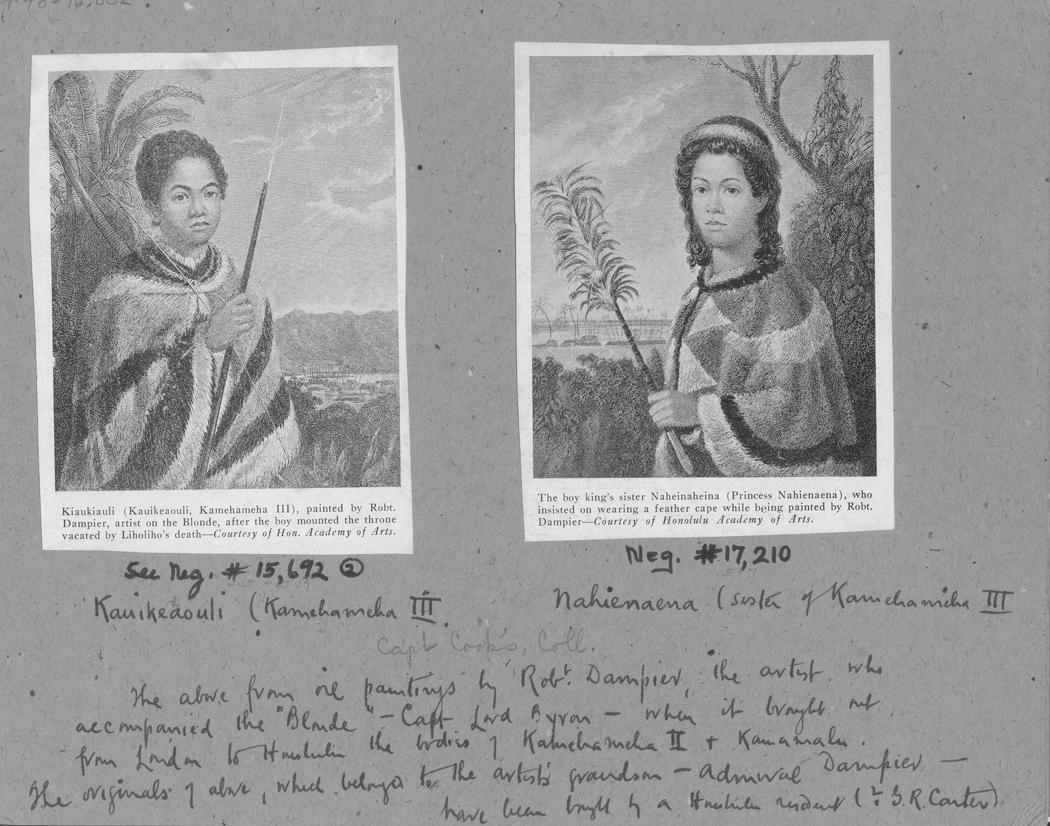 Kiaukiauli (Kauikeaouli, Kamehameha III), painted by Robt.
Dampier, artist on the Blonde, after the boy mounted the throne
vacated by Liholiho's death—Courtesy of Hon. Academy of Arts.
The boy king's sister Naheinaheina (Princess Nahienaena), who
insisted on wearing a feather cape while being painted by Robt.
Dampier—Courtesy of Honolulu Academy of Arts.
See Neg. # 15,692 ②
Neg. #17,210
Kauikeaouli (Kamehameha III
Nahienaena (sister of Kamehameha III
Capt Cook's. Coll.
The above from oil paintings by Robt. Dampier, the artist who
accompanied the "Blonde" – Capt Lord Byron – when it brought out
from London to Honolulu the bodies of Kamehameha II + Kamamalu.
The originals of above, which belonged to the artist's grandson – Admiral Dampier –
have been bought by a Honolulu resident ( G.R. Carter)